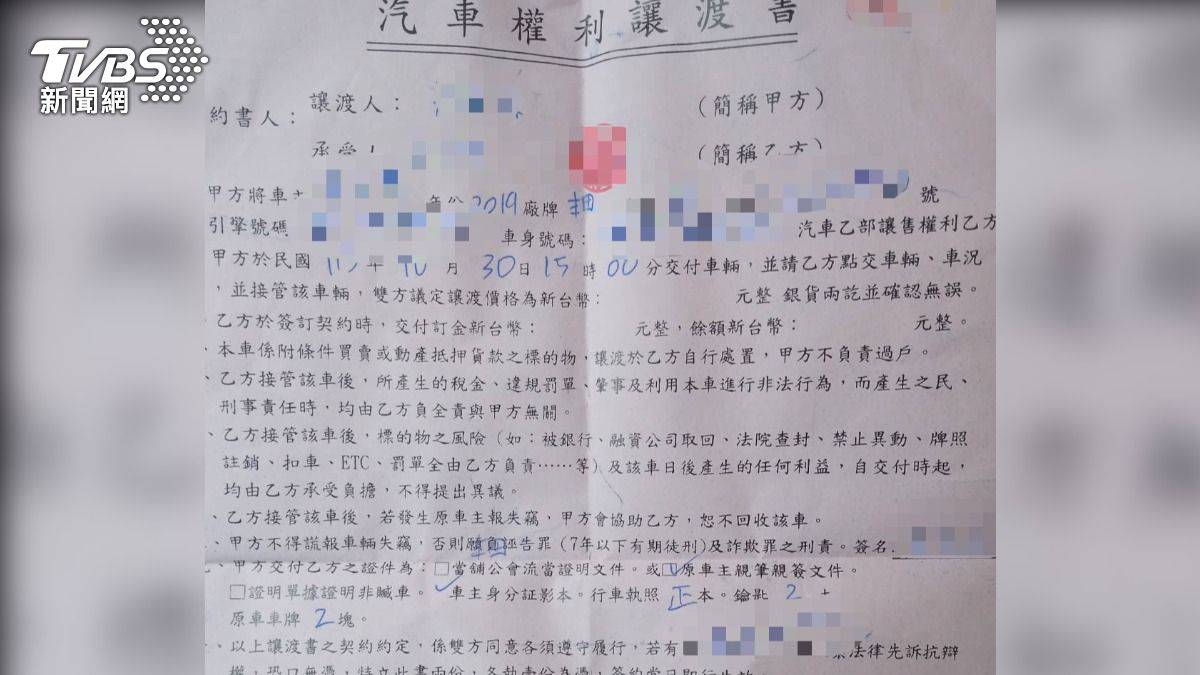 TVBS
新聞網
汽車權利讓渡書
讓渡人：（簡稱甲方）
約書人：
（簡稱乙方）
甲方將車 2019廠牌 號
引擎號碼 車身號碼： 汽車乙部讓售權利乙方
甲方於民國 年 10月30日15時00分交付車輛，並請乙方點交車輛、車況
，並接管該車輛，雙方議定讓渡價格為新台幣： 元整 銀貨兩訖並確認無誤。
乙方於簽訂契約時，交付訂金新台幣： 元整，餘額新台幣： 元整。
、本車係附條件買賣或動產抵押貸款之標的物，讓渡於乙方自行處置，甲方不負責過戶。
、乙方接管該車後，所產生的稅金、違規罰單、肇事及利用本車進行非法行為，而產生之民、
刑事責任時，均由乙方負全責與甲方無關。
、乙方接管該車後，標的物之風險（如：被銀行、融資公司取回、法院查封、禁止異動、牌照
註銷、扣車、ETC、罰單全由乙方負責……等）及該車日後產生的任何利益，自交付時起，
均由乙方承受負擔，不得提出異議。
、乙方接管該車後，若發生原車主報失竊，甲方會協助乙方，恕不回收該車。
、甲方不得謊報車輛失竊，否則願負誣告罪（7年以下有期徒刑）及詐欺罪之刑責。簽名
、甲方交付乙方之證件為：□當舖公會流當證明文件。或□原車主親筆親簽文件。
□證明單據證明非贓車。車主身分証影本。行車執照正本。鑰匙 2
原車車牌2塊。
、以上讓渡書之契約約定，係雙方同意各須遵守履行，若有 法律先訴抗辯
權，恐口無憑，特立此書兩份，各執壹份為憑，簽約當日即行生效